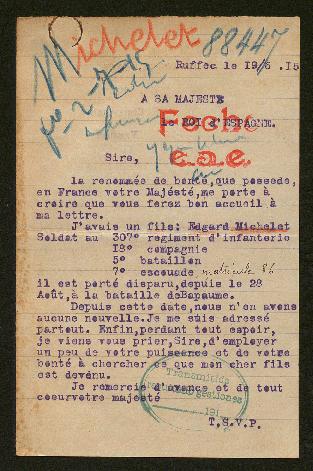 Michelet
88447
Ruffec le 19/6 .15
A SA MAJESTE
le ROI d'ESPAGNE.
Fecha
c.a.e.
Sire,
la renommée de bonté,que possede,
en France votre Majésté,me porte à
croire que vous ferez bon accueil à
ma lettre.
J'avais un fils: Edgard Michelet
Soldat au 307° regiment d'infanterie
19° compagnie
5° bataillon
7° escouade matricule
il est porté disparu,depuis le 28
Août,à la bataille deBapaume.
Depuis cette date,nous n'en avons
aucune nouvelle.Je me suis adressé
partout. Enfin,perdant tout espoir,
je viens vous prier,Sire,d'employer
un peu de votre puissance et de votre
bonté à chercher ce que mon cher fils
est devenu.
Je remercie d'avance et de tout
coeurvotre majesté
Transmitida
gestiones
191
T.S.V.P.